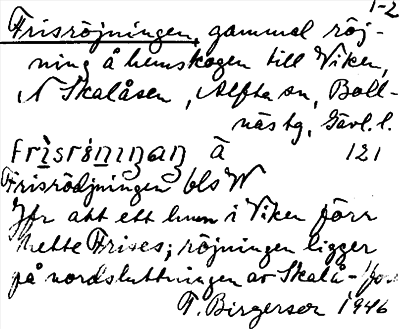 1-2
Frisröjningen, gammal röj-
ning å hemskogen till Viken,
N Skalåsen, Alfta sn, Boll-
näs tg, Gävl. l.
frisröniŋaŋ å 121
Frisrödjningen bls W
Jfr att ett hem i Viken förr
hette Frises; röjningen ligger
på nordsluttningen av Skalå-
T. Birgerson 1946